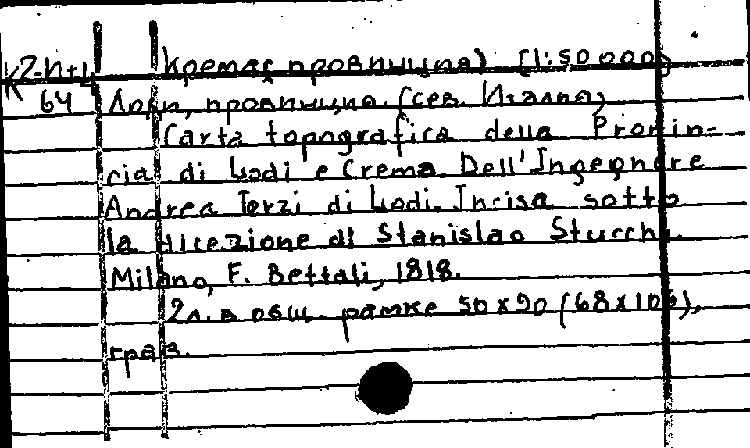 К2-И+Ц Кремас провинция) (1:50 000)
64 Лоди, провинция. (сев. Италия)
Carta topografica della Provin-
cia di Lodi e Crema. Dell'Ingegnere
Andrea Terzi di Lodi. Incisa sotto
la direzione di Stanislao Stucchi.
Milano, F. Bettali, 1818.
2л. в общ. рамке 50x90 (68x106),
грав.